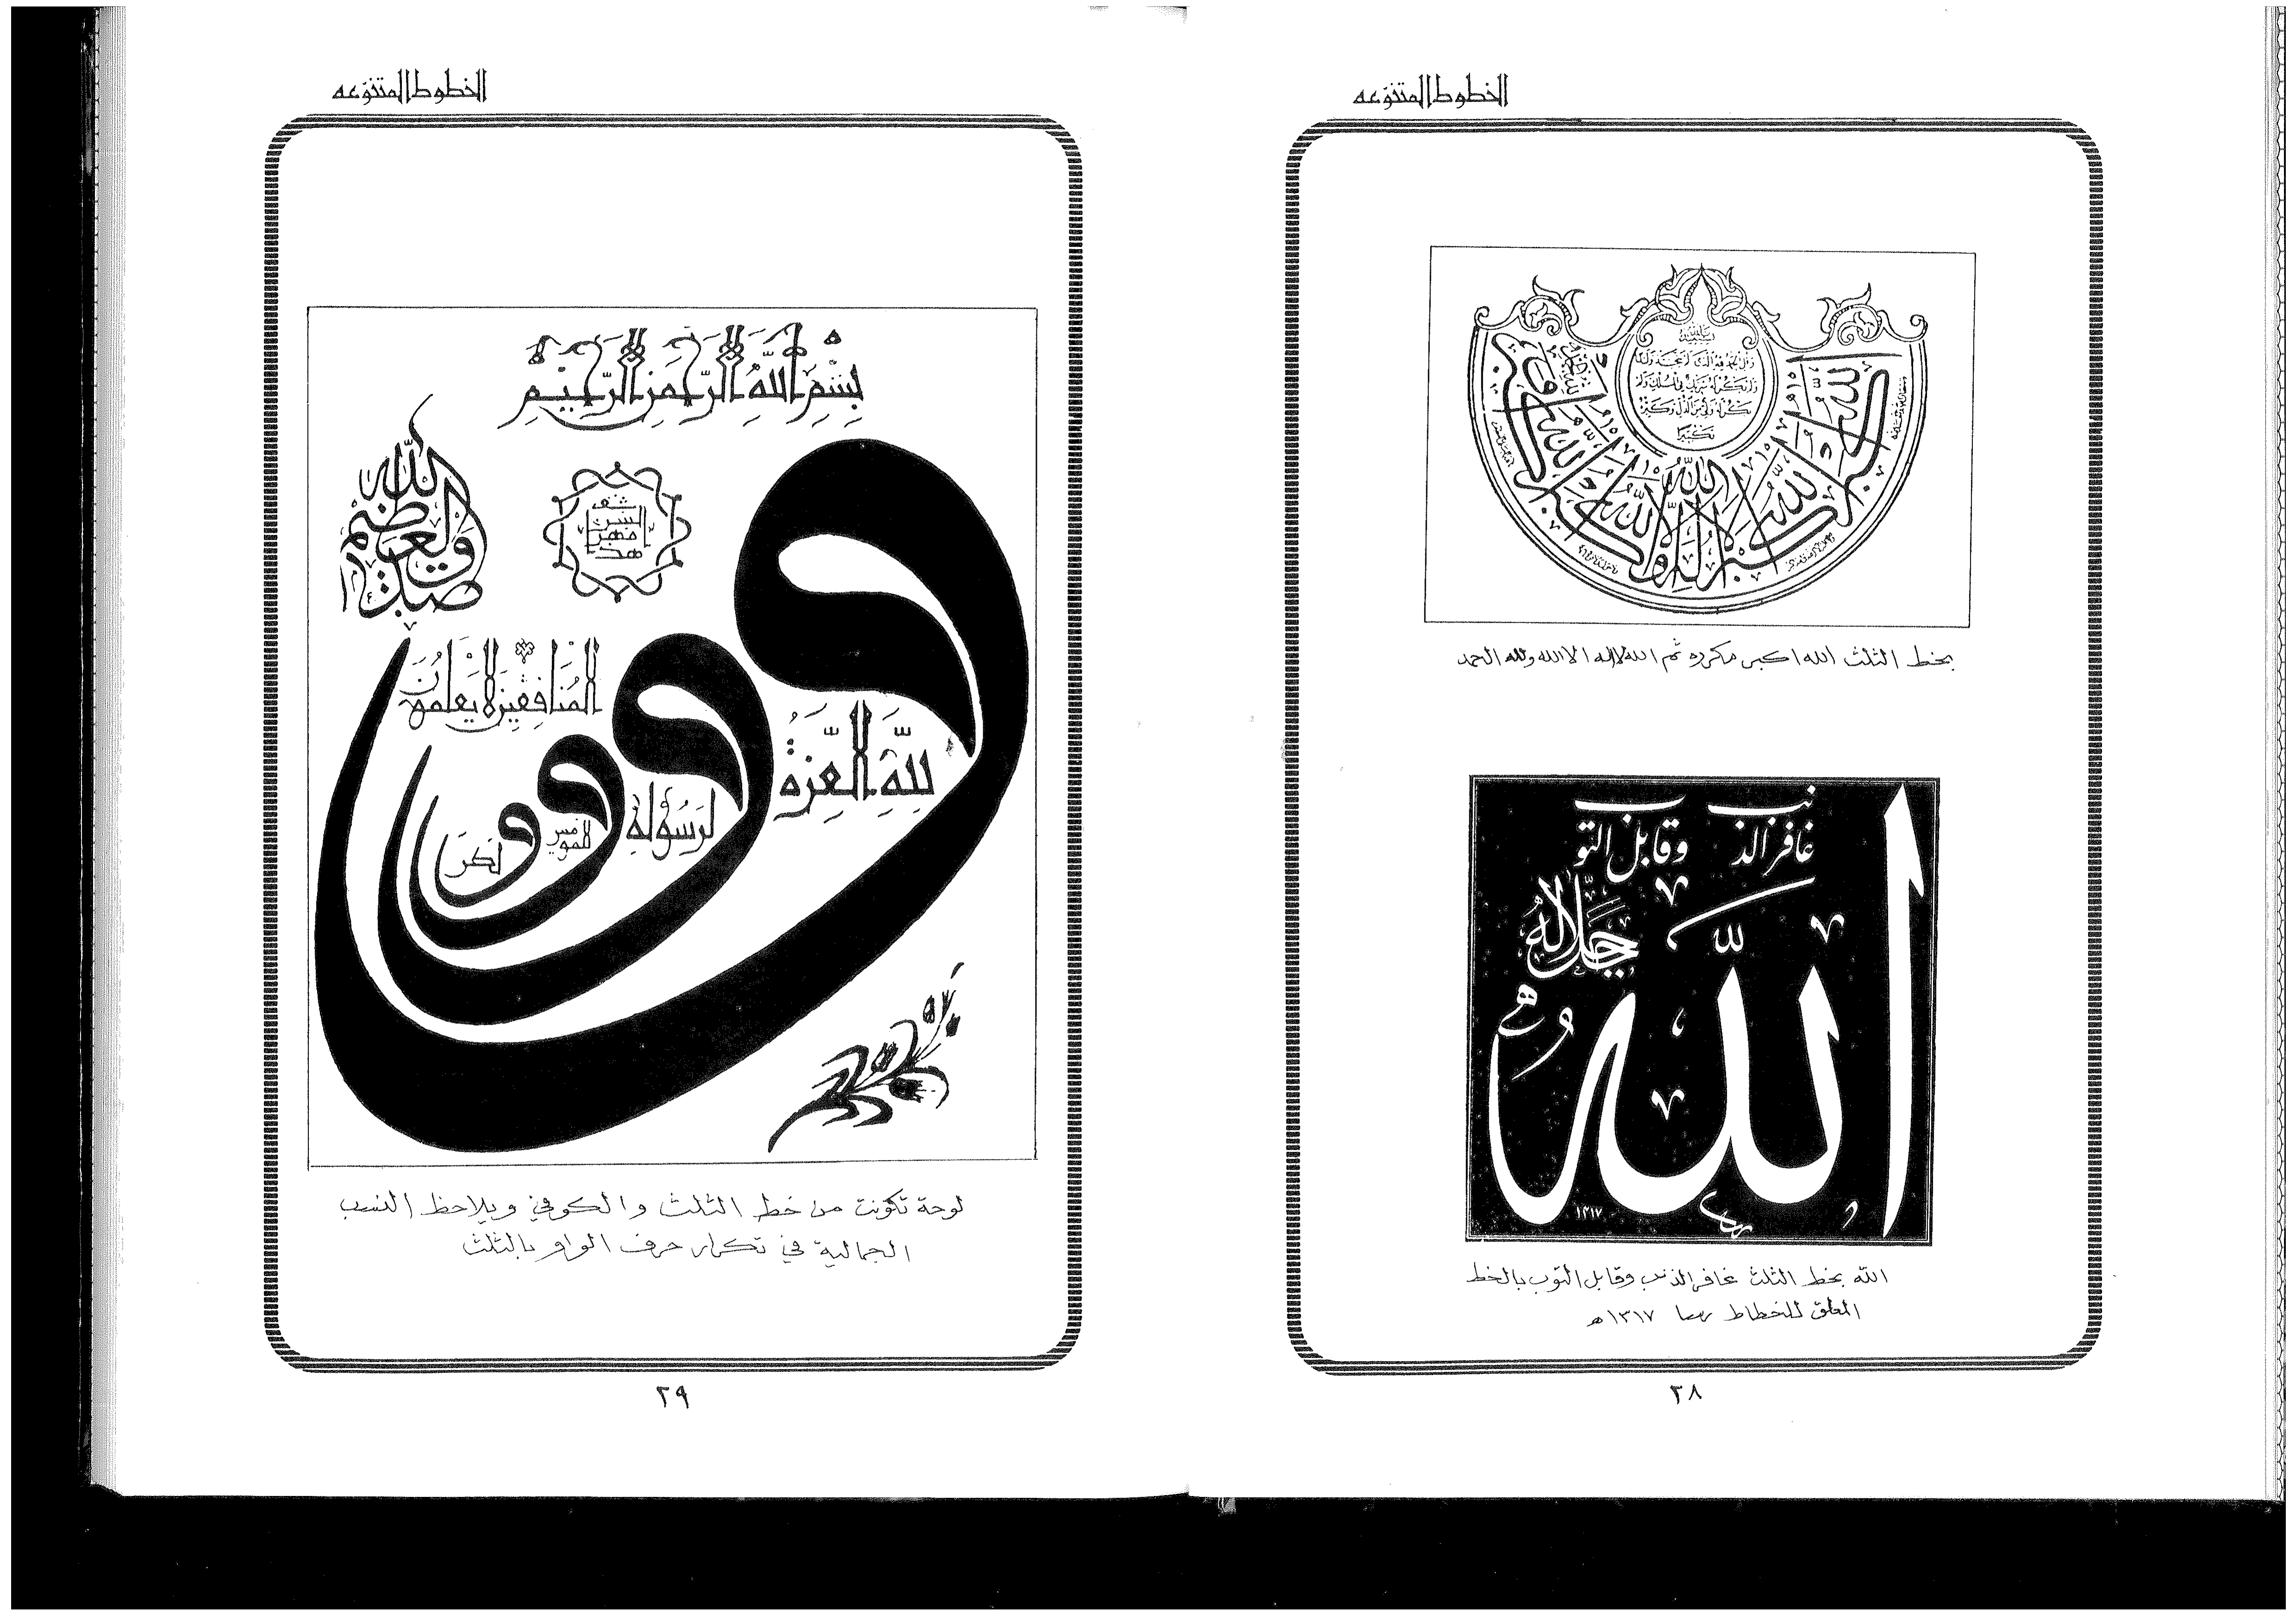 الخطوط المتنوعه
الله اكبر الله اكبر
لا اله الا الله
الله اكبر الله اكبر
ولله الحمد
بخط الثلث الله اكبر مكرره ثم الله لا إله الا الله ولله الحمد
غافر الذنب
وقابل التوب
الله
جل جلاله
١٣١٧
الله بخط الثلث غافر الذنب وقابل التوب بالخط
المعلق للخطاط رسا ١٣١٧ه
٢٨
الخطوط المتنوعه
بِسْمِ اللَّهِ الرَّحْمنِ الرَّحِيْمِ
صدق الله العظيم
و
لِلَّهِ الْعِزَّةُ
و
لِرَسُولِهِ
و
للمومنين
و
لكن
المُنَافِقِينَ لا يَعْلَمُونَ
لوحة تكونت من خط الثلث والكوفي ويلاحظ النسب
الجمالية في تكرار حرف الواو بالثلث
٢٩